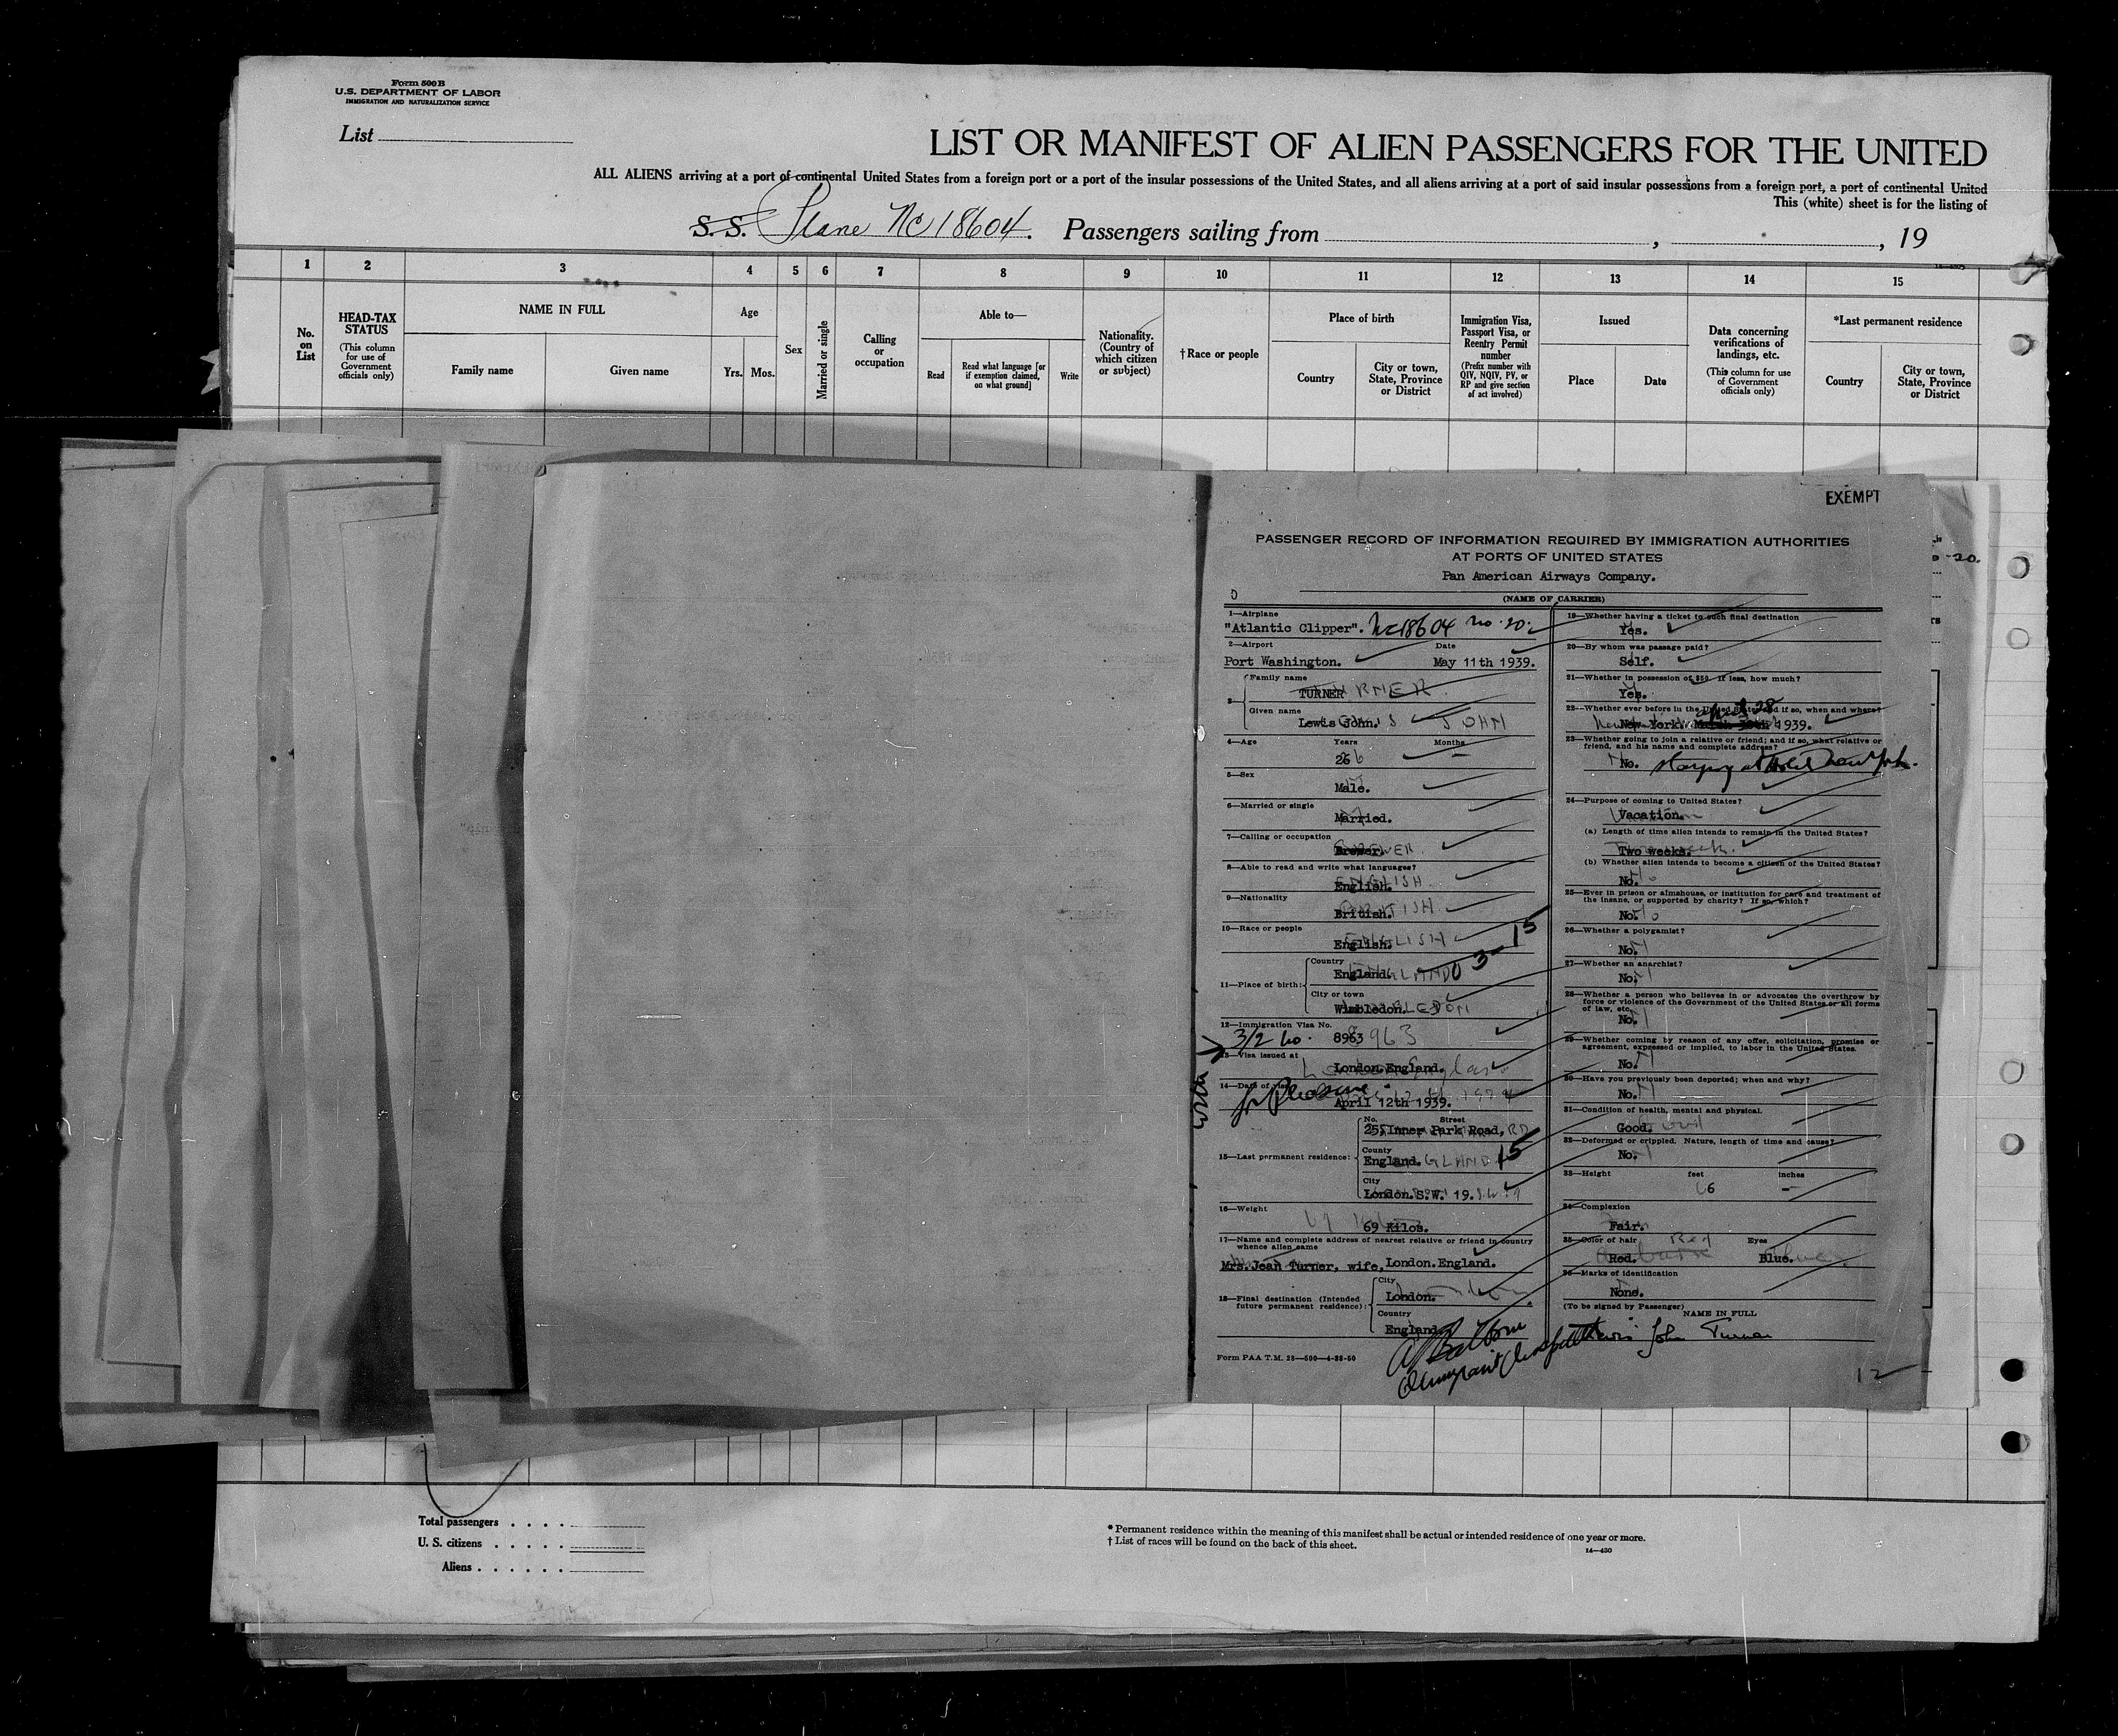 Form 500 B
U.S. DEPARTMENT OF LABOR
IMMIGRATION AND NATURALIZATION SERVICE
List
LIST OR MANIFEST OF ALIEN PASSENGERS FOR THE UNITED
ALL ALIENS arriving at a port of continental United States from a foreign port or a port of the insular possessions of the United States, and all aliens arriving at a port of said insular possessions from a foreign port, a port of continental United
This (white) sheet is for the listing of
S.S. Plane NC 18604. Passengers sailing from , , 19
1 2 3 4 5 6 7 8 9 10 11 12 13 14 15
No. on List
HEAD-TAX STATUS
(This column for use of Government officials only)
NAME IN FULL
Family name
Given name
Age
Yrs. Mos.
Sex
Married or single
Calling or occupation
Able to—
Read
Read what language [or if exemption claimed, on what ground]
Write
Nationality. (Country of which citizen or subject)
†Race or people
Place of birth
Country
City or town, State, Province or District
Immigration Visa, Passport Visa, or Reentry Permit number
(Prefix number with QIV, NQIV, PV, or RP and give section of act involved)
Issued
Place
Date
Data concerning verifications of landings, etc.
(This column for use of Government officials only)
*Last permanent residence
Country
City or town, State, Province or District
EXEMPT
PASSENGER RECORD OF INFORMATION REQUIRED BY IMMIGRATION AUTHORITIES
AT PORTS OF UNITED STATES
Pan American Airways Company.
(NAME OF CARRIER)
1—Airplane
"Atlantic Clipper". NC18604 no. 20.
2—Airport Date
Port Washington. May 11th 1939.
3—
Family name
TURNER
Given name
Lewis John.
4—Age Years Months
26 —
5—Sex
Male.
6—Married or single
Married.
7—Calling or occupation
Brewer.
8—Able to read and write what languages?
English.
9—Nationality
British.
10—Race or people
English. 15
11—Place of birth:
Country
England. 3
City or town
Wimbledon.
12—Immigration Visa No.
3/2 no. 8963
13—Visa issued at
London.England.
14—Date of visa
for Pleasure April 12th 1939.
15—Last permanent residence:
No. Street
25,Inner Park Road,
County
England. 15
City
London.S.W. 19.
16—Weight
69 Kilos.
17—Name and complete address of nearest relative or friend in country
whence alien came
Mrs.Jean Turner, wife, London.England.
18—Final destination (Intended
future permanent residence):
City
London.
Country
England.
Form PAA T.M. 28—500—4-38-50
19—Whether having a ticket to such final destination
Yes.
20—By whom was passage paid?
Self.
21—Whether in possession of $50. If less, how much?
Yes.
22—Whether ever before in the United States and if so, when and where?
New York. April 28 1939.
23—Whether going to join a relative or friend; and if so, what relative or
friend, and his name and complete address?
No. staying at Hotel New York.
24—Purpose of coming to United States?
Vacation.
(a) Length of time alien intends to remain in the United States?
Two weeks.
(b) Whether alien intends to become a citizen of the United States?
No.
25—Ever in prison or almshouse, or institution for care and treatment of
the insane, or supported by charity? If so, which?
No.
26—Whether a polygamist?
No.
27—Whether an anarchist?
No.
28—Whether a person who believes in or advocates the overthrow by
force or violence of the Government of the United States or all forms
of law, etc.
No.
29—Whether coming by reason of any offer, solicitation, promise or
agreement, expressed or implied, to labor in the United States.
No.
30—Have you previously been deported; when and why?
No.
31—Condition of health, mental and physical.
Good.
32—Deformed or crippled. Nature, length of time and cause?
No.
33—Height feet inches
6 —
34—Complexion
Fair.
35—Color of hair Eyes
Red. Blue.
36—Marks of identification
None.
(To be signed by Passenger)
NAME IN FULL
Lewis John Turner
Immigrant Inspector
12
Total passengers . . . .
U. S. citizens . . . . .
Aliens . . . . . .
* Permanent residence within the meaning of this manifest shall be actual or intended residence of one year or more.
† List of races will be found on the back of this sheet.
14—430